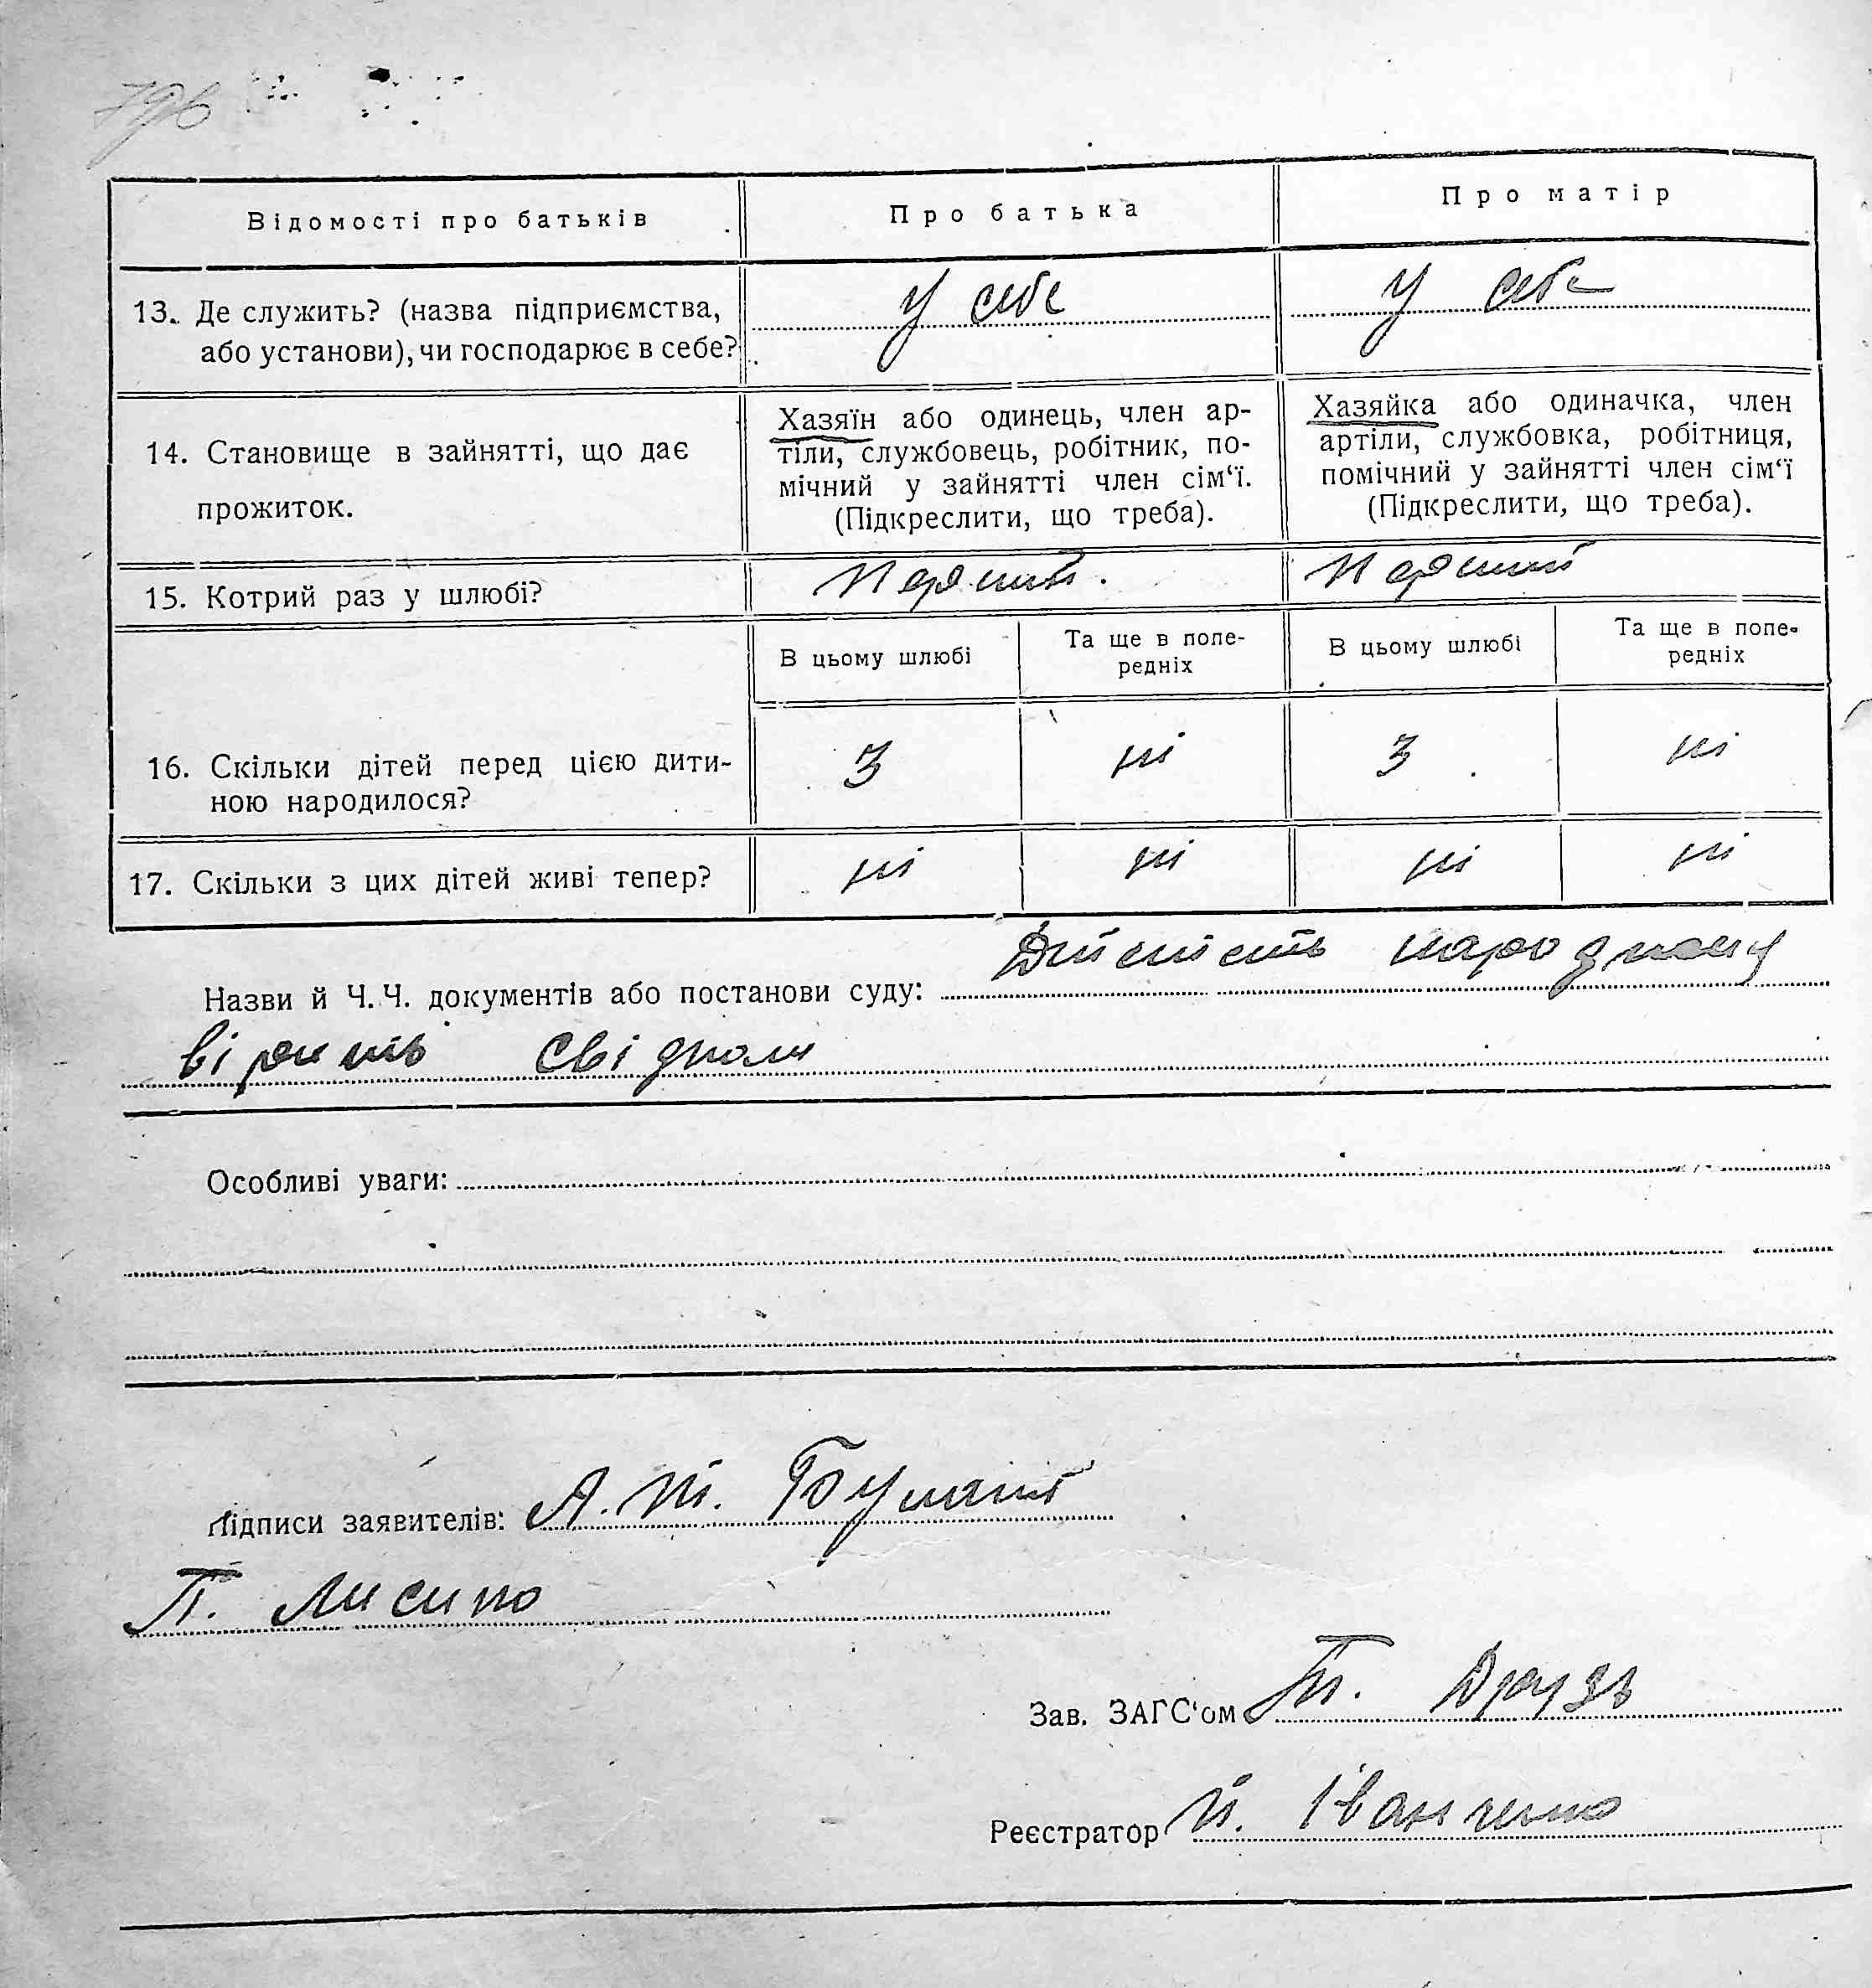 796
Відомості про батьків
Про батька
Про матір
13. Де служить? (назва підприємства,
або установи), чи господарює в себе?
У себе
У себе
14. Становище в зайнятті, що дає
прожиток.
Хазяїн або одинець, член ар-
тіли, службовець, робітник, по-
мічний у зайнятті член сім‘ї.
(Підкреслити, що треба).
Хазяйка або одиначка, член
артіли, службовка, робітниця,
помічний у зайнятті член сім‘ї
(Підкреслити, що треба).
15. Котрий раз у шлюбі?
Перший.
Перший
В цьому шлюбі
Та ще в попе-
редніх
В цьому шлюбі
Та ще в попе-
редніх
16. Скільки дітей перед цією дити-
ною народилося?
3
ні
3
ні
17. Скільки з цих дітей живі тепер?
ні
ні
ні
ні
Назви й Ч.Ч. документів або постанови суду: Дійсність народженя
вірить свідком
Особливі уваги:
Підписи заявителів: А. Т.
П. Лисенко
Зав. ЗАГС‘ом Т. Друзь
Реєстратор Й. Іванченко